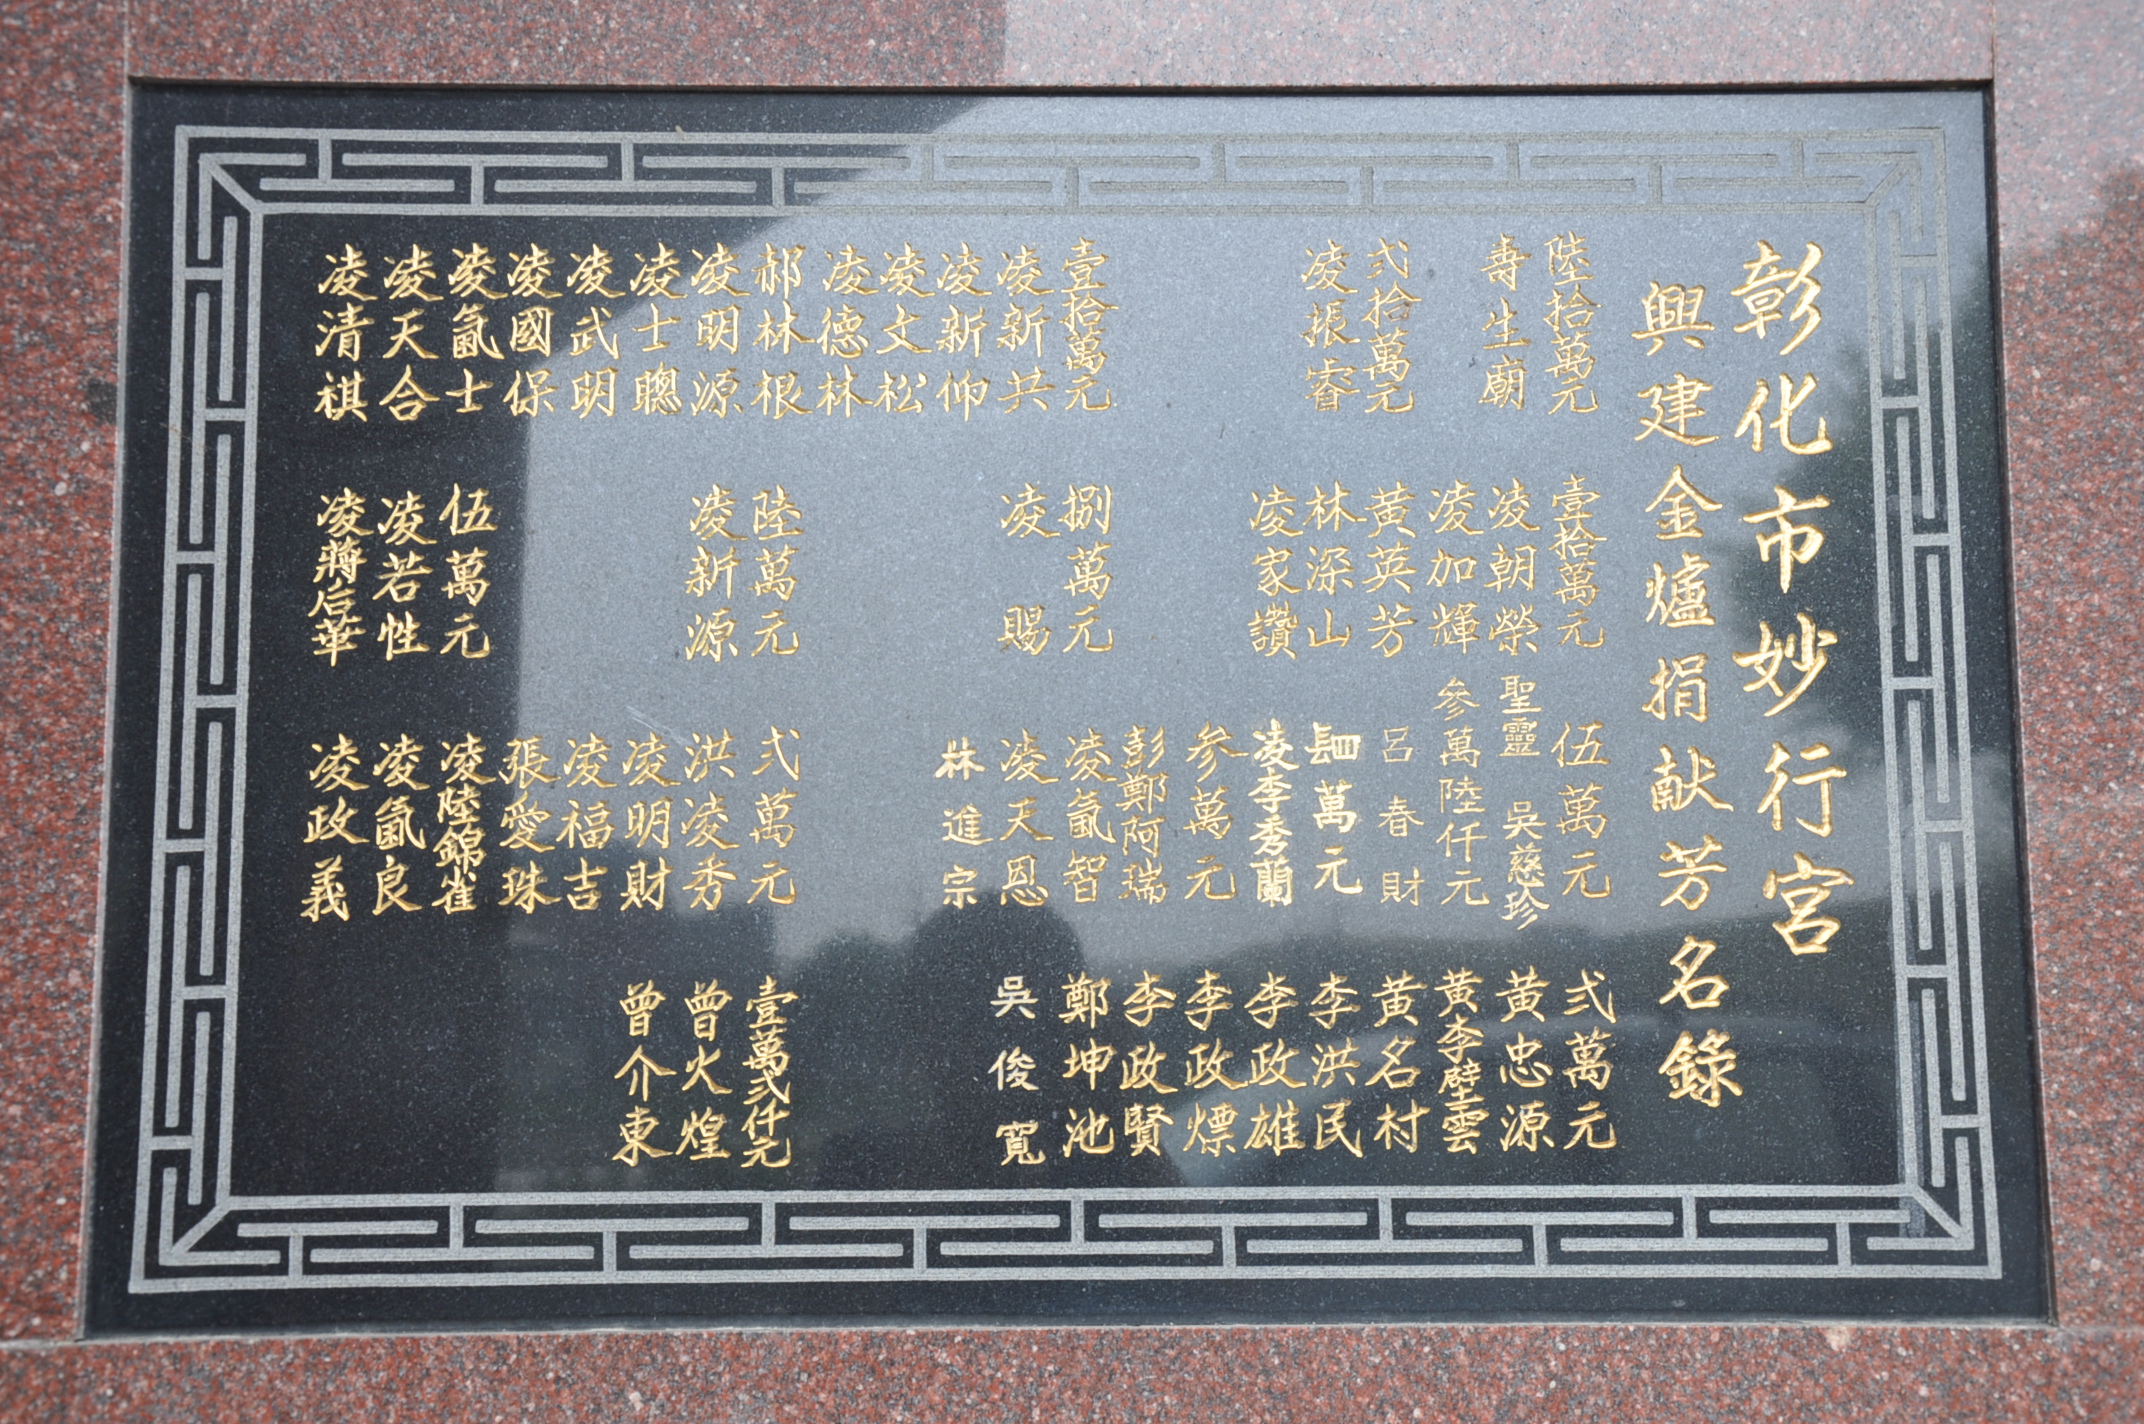 彰化市妙行宮
興建金爐捐献芳名錄
陸拾萬元
壽生廟
弍拾萬元
凌振睿
壹拾萬元
凌新共
凌新仰
凌文松
凌德林
郝林根
凌明源
凌士聰
凌武明
凌國保
凌氤士
凌天合
凌清祺
壹拾萬元
凌朝榮
凌加輝
黃英芳
林深山
凌家讚
捌萬元
凌賜
陸萬元
凌新源
伍萬元
凌若性
凌蔣后華
伍萬元
聖靈 吳慈珍
參萬陸仟元
呂春財
萬元
凌李秀蘭
参萬元
彭鄭阿瑞
凌氤智
凌天恩
林進宗
弍萬元
洪凌秀
凌明財
凌福吉
張愛珠
凌陸錦雀
凌氤良
凌政義
弍萬元
黃忠源
黃李壁雲
黃名村
李洪民
李政雄
李政熛
李政賢
鄭坤池
吳俊寬
壹萬弍仟元
曾火煌
曾介東